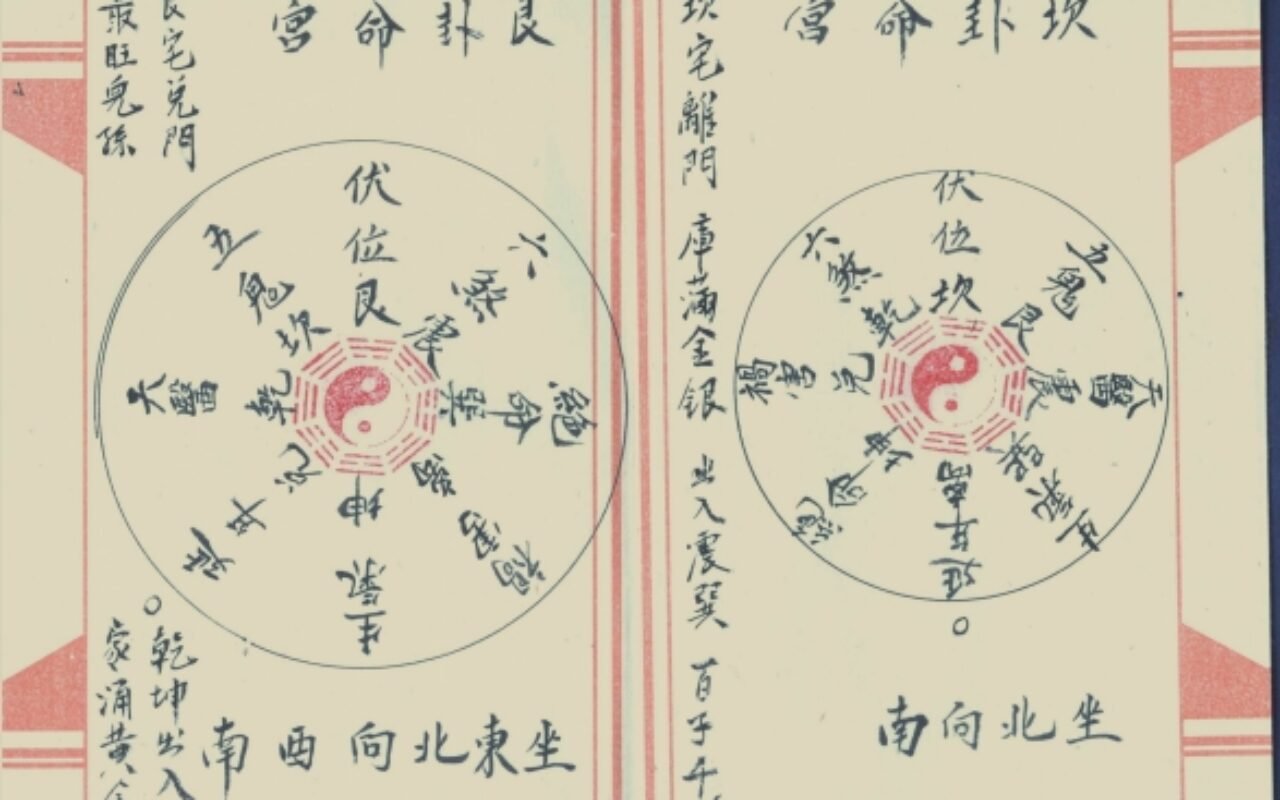 坎卦命宮
伏位坎
五鬼艮
天醫震
生氣巽
延年離
絕命坤
禍害兌
六煞乾
坐北向南
坎宅離門 庫滿金銀 出入震巽 百子千
艮卦命宮
伏位艮
六煞震
絕命巽
禍害離
生氣坤
延年兌
天醫乾
五鬼坎
坐東北向西南
艮宅兌門
旺兒孫
乾坤出入
家涌黃金